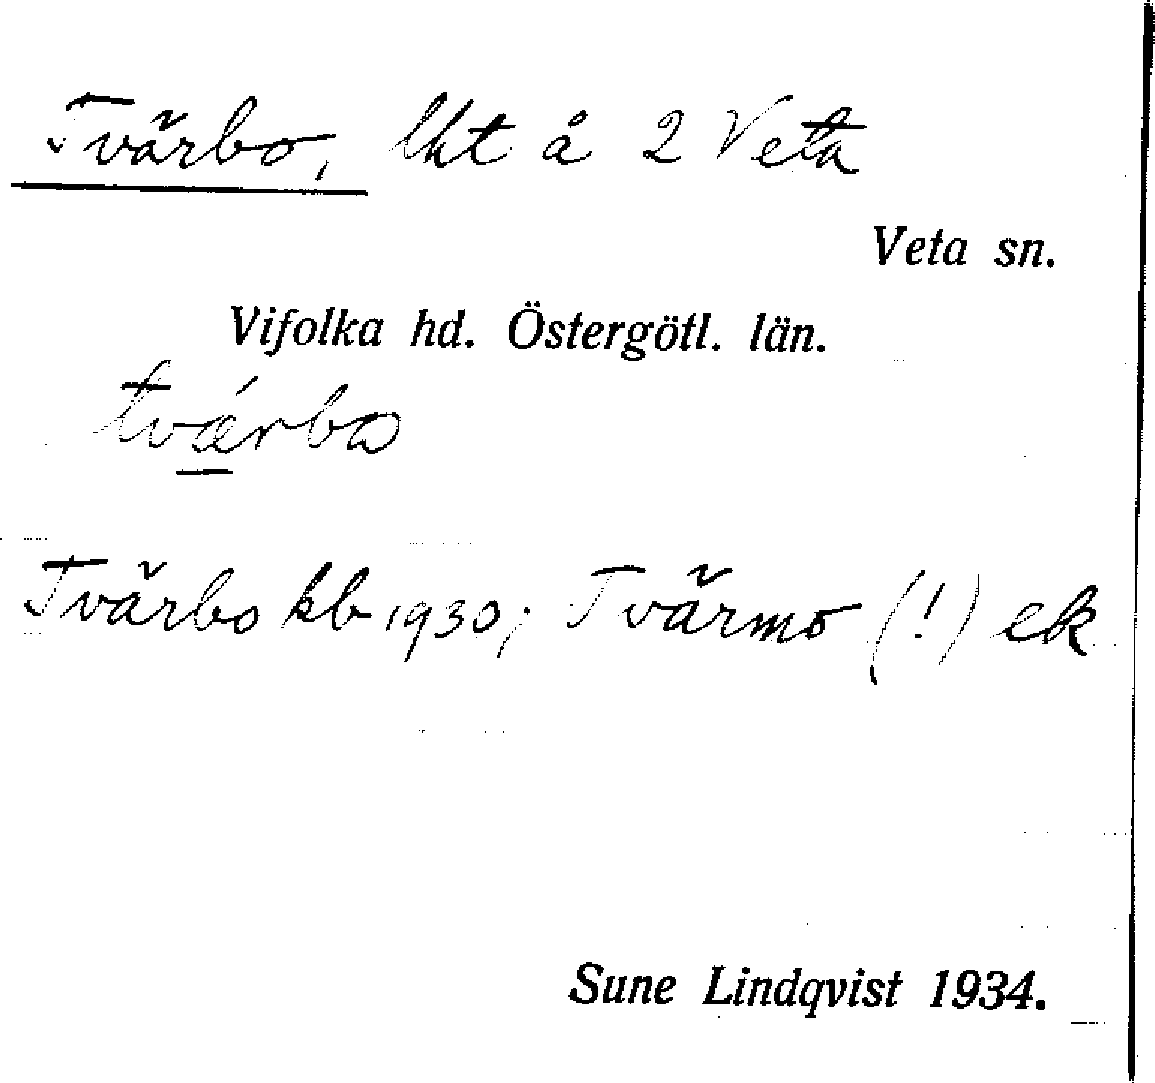 Tvärbo, lht å 2 Veta
Veta sn.
Vifolka hd. Östergötl. län.
tvǽrbo
Tvärbo kb 1930; Tvärmo (!) ek
Sune Lindqvist 1934.